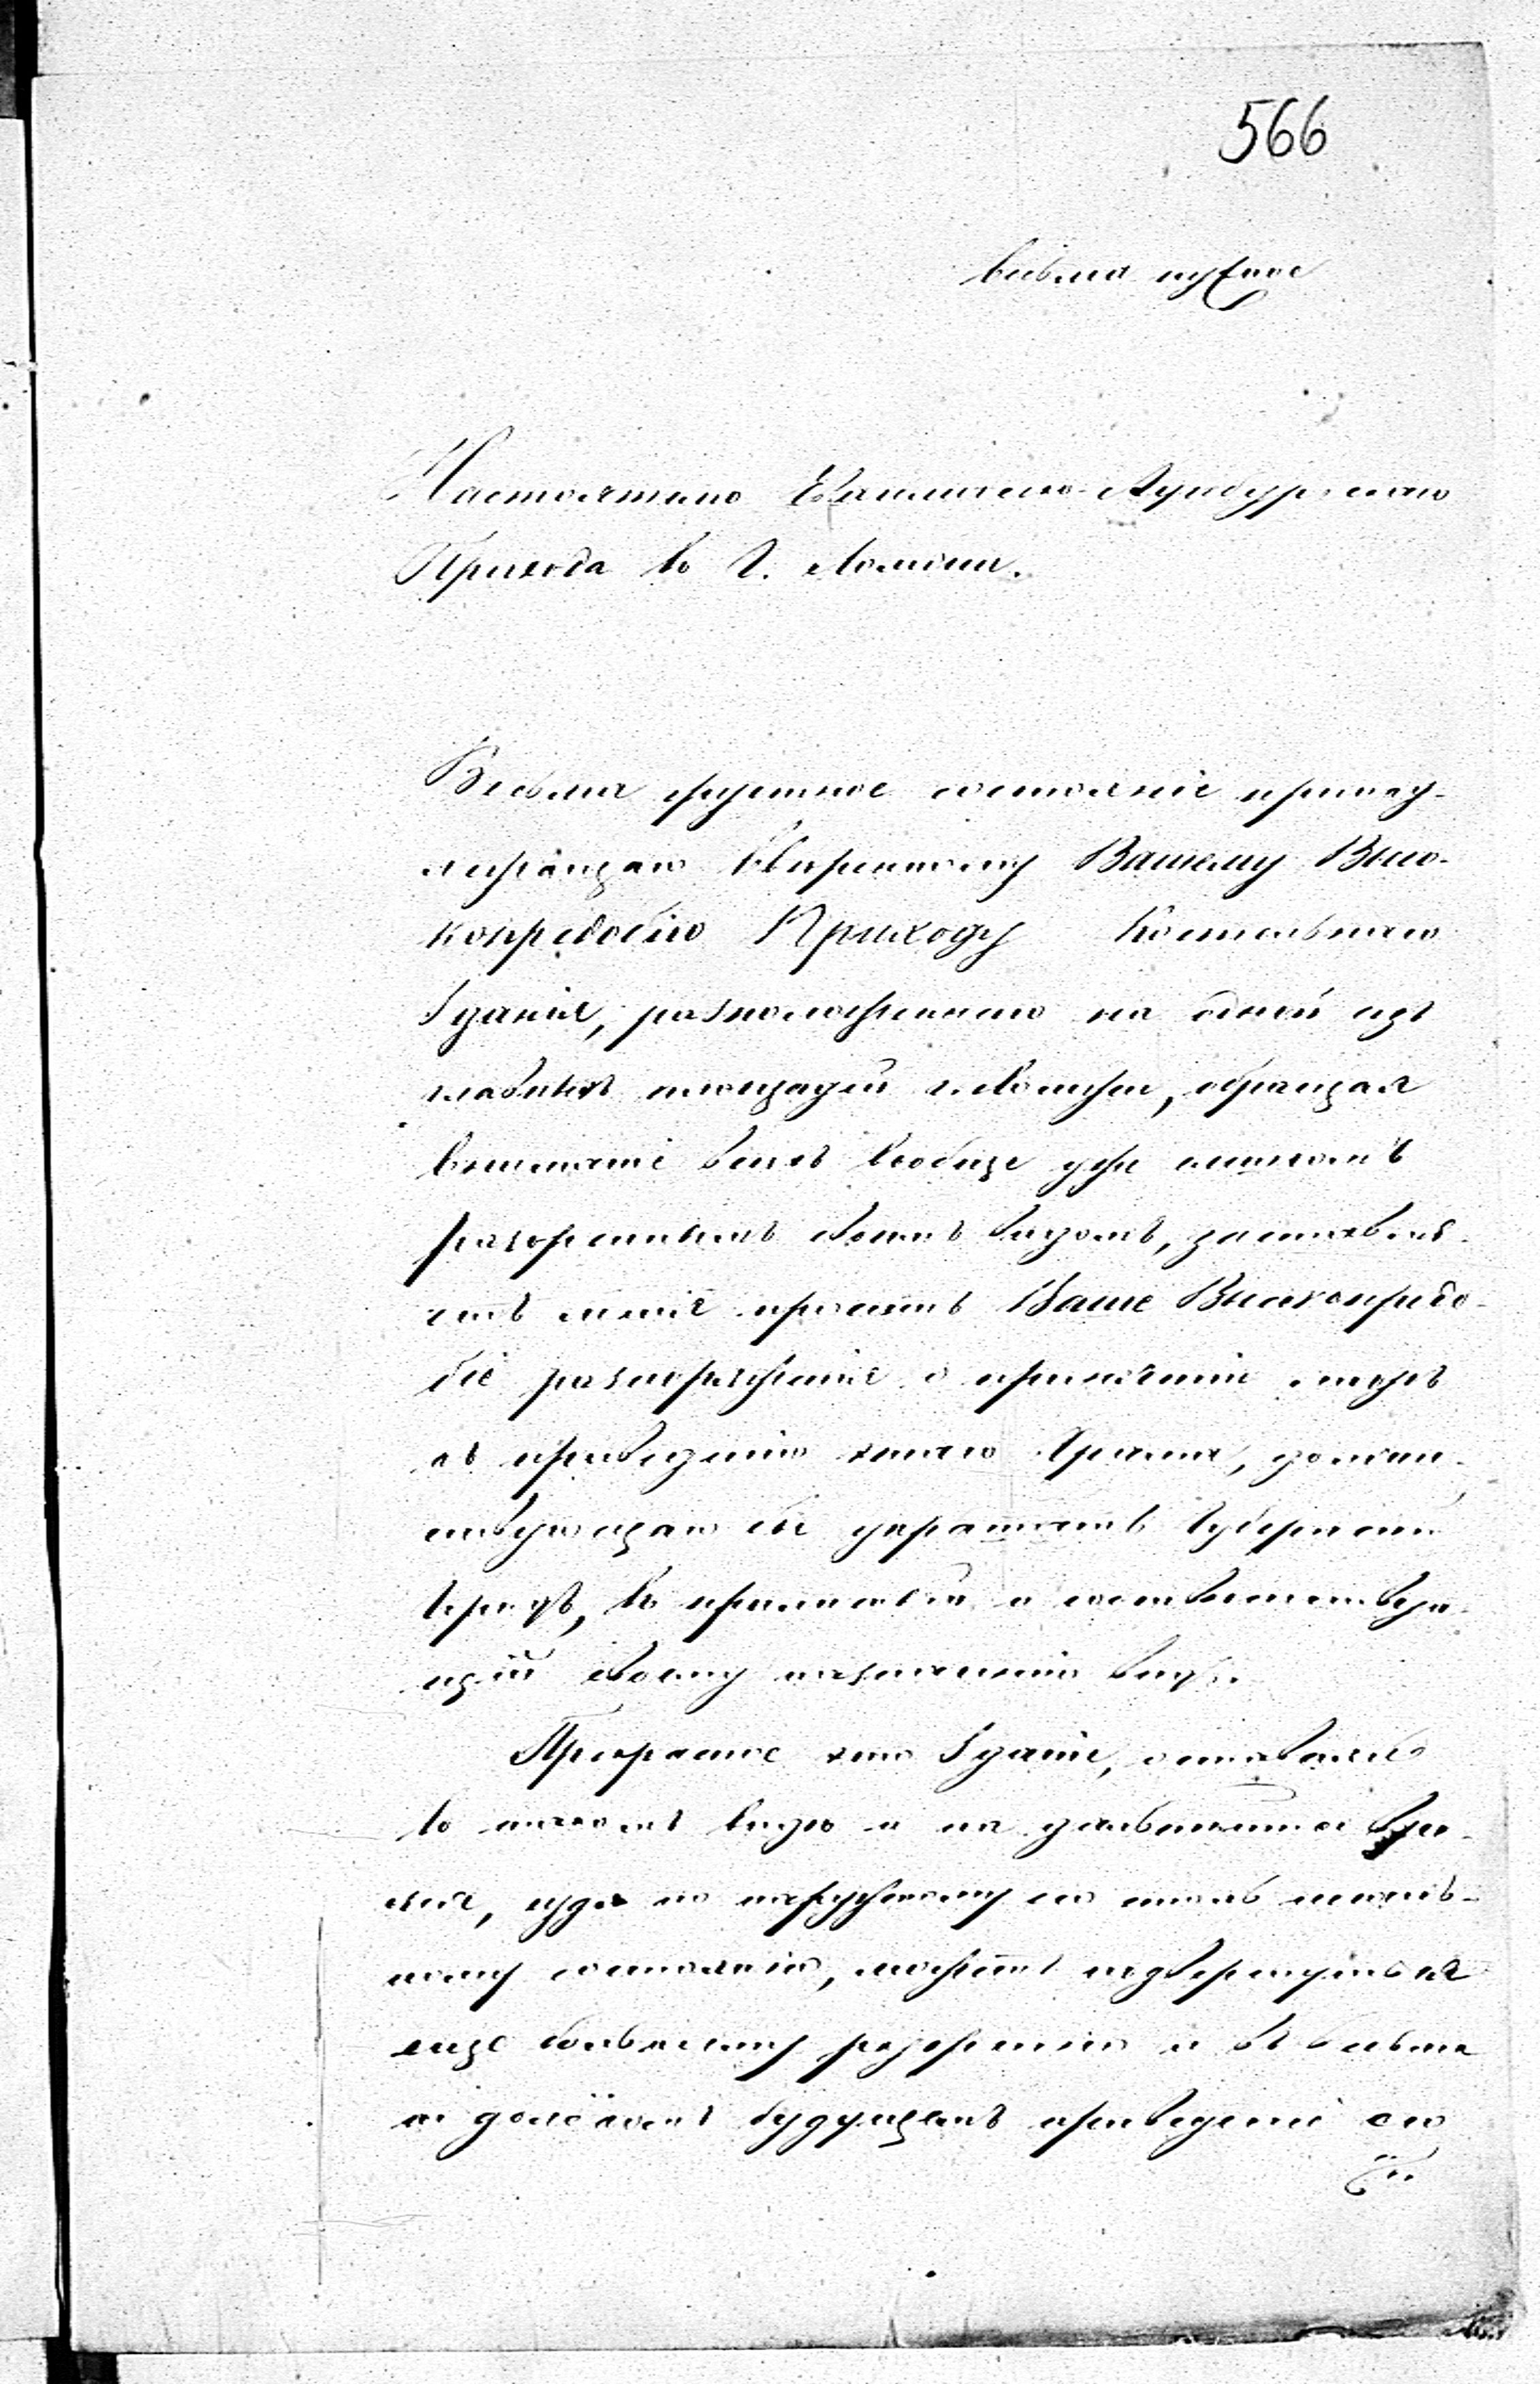 566
весьма нужное
Настоятелю Евангелическо-Аугсбургскаго
Прихода въ Г. Ломжѣ.
Весьма грустное состояніе принад-
лежащаго Ввѣренному Вашему Высо-
копреподобію Приходу Костельнаго
Зданія, расположеннаго на одной изъ
главныхъ площадей г. Ломжи, обращая
вниманіе всѣхъ вообще уже слишкомъ
разореннымъ своимъ видомъ, заставля-
етъ меня просить Ваше Высокопрепо-
добіе распоряженія о принятіи мѣръ
къ приведенію этаго Храма, долженст-
вующаго бы украшать Губернскій
Городъ, въ приличный и соотвѣтствую-
щій своему назначенію видъ.
Прекрасное это Зданіе, оставаясь
въ такомъ видѣ и на дальнѣйшее вре-
мя, судя по наружному его столь
ному состоянію, можетъ подвергнуться
еще большему разоренію и весьма
будущемъ приведеніе его